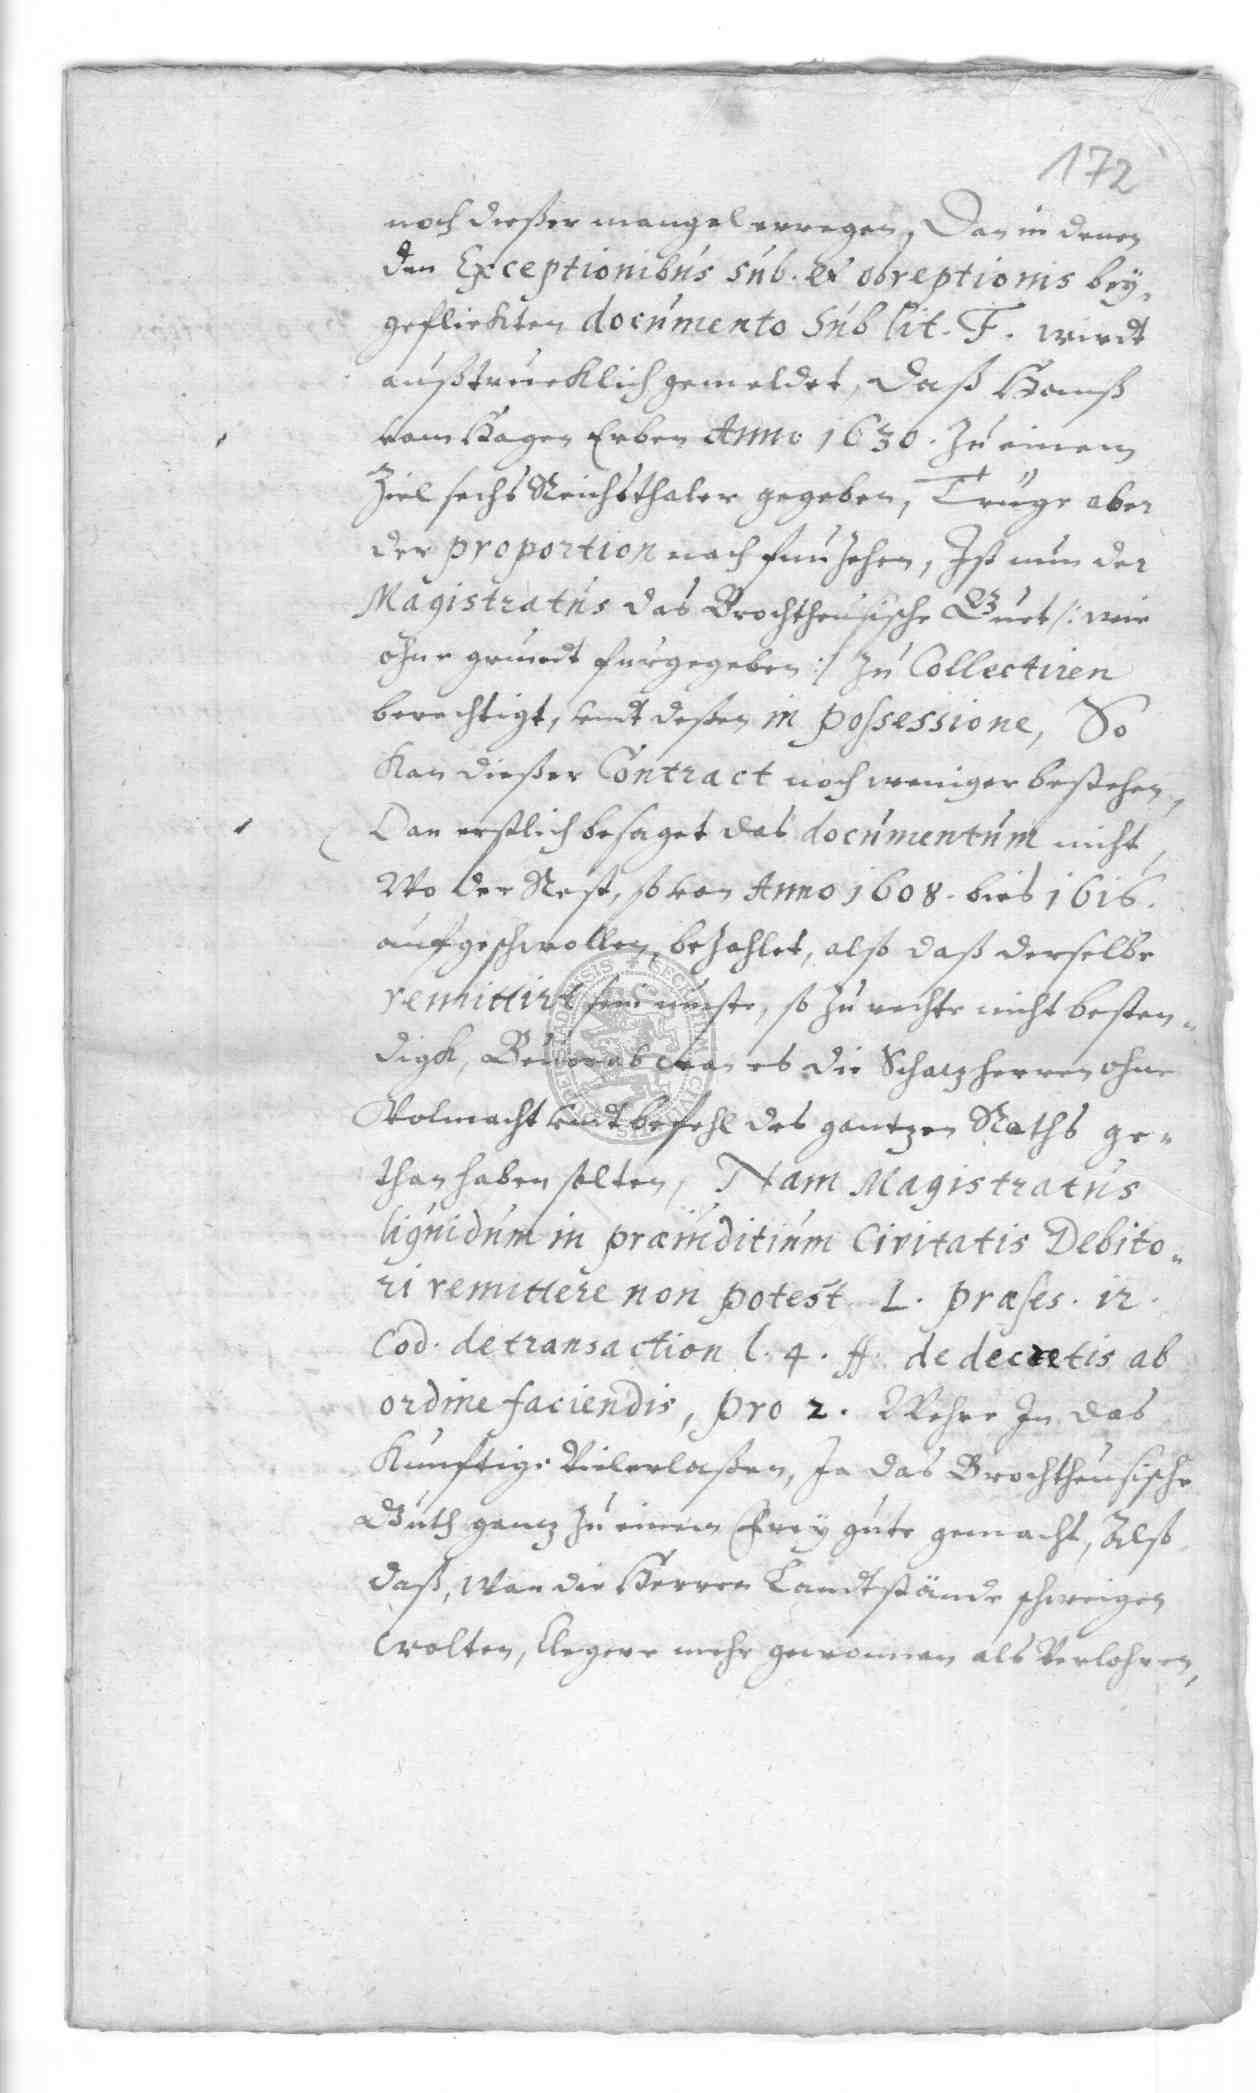 172
noch dießer mangel erregen, Dan in denen
den Exceptionibus sub. et obreptionis bey,
geflickten documento sub lit. F. wirdt
außtrucklich gemeldet, Daß Hanß
vom Hagen Erben Anno 1630. zu einem
Ziel sechs Reichsthaler gegeben, Trüge aber
der proportion nach funfzehen, Ist nun der
Magistratus das Brochtheusische Guet /: wie
ohne grundt furgegeben :/ zu Collectiren
berechtigt, undt deßen in possessione, So
kan dießer Contract noch weniger bestehen,
Dan erstlich besaget das documentum nicht,
Wo der Rest, so von Anno 1608. bies 1616.
aufgeschwollen, bezahlet, also daß derselbe
remittirt sein muste, so zu rechte nicht besten=
digk, Bevorab wan es die Schatzherren ohne
Volmacht undt befehl des gantzen Raths ge=
than haben solten, Nam Magistratus
liquidum in præiuditium Civitatis Debito=
ri remittere non potest L. præses. 12.
Cod. de transaction l. 4. ff. de decretis ab
ordine faciendis, pro 2. Wehre In das
Kunftige Vielerlaßen, Ja das Brochtheusische
Guth gantz zu einem Frey gute gemacht, Also
daß, Wan die Herren Landtstände schweigen
wolten, Klegere mehr gewonnen als Verlohren,